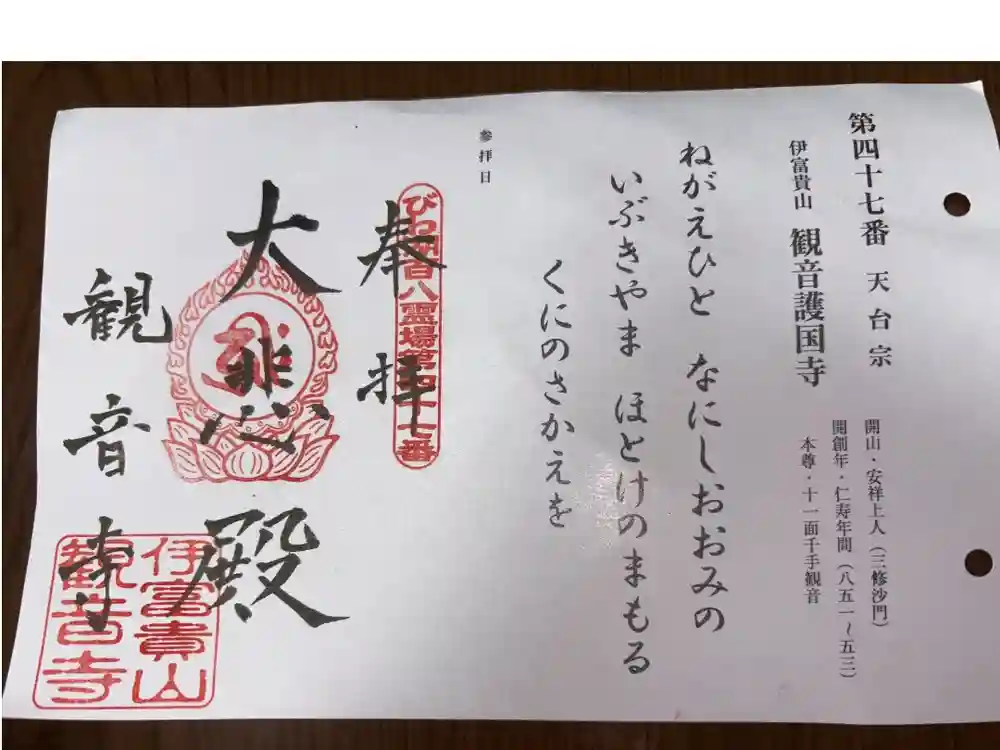 第四十七番 天台宗
伊富貴山 観音護国寺
開山・安祥上人（三修沙門）
開創年・仁寿年間（八五一～五三）
本尊・十一面千手観音
ねがえひと なにしおおみの
いぶきやま ほとけのまもる
くにのさかえを
参拝日
奉拝
びわ湖百八霊場第四十七番
大悲殿
観音寺
伊富貴山
観音寺